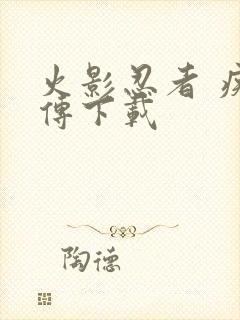 火影忍者
傳下載
陶德